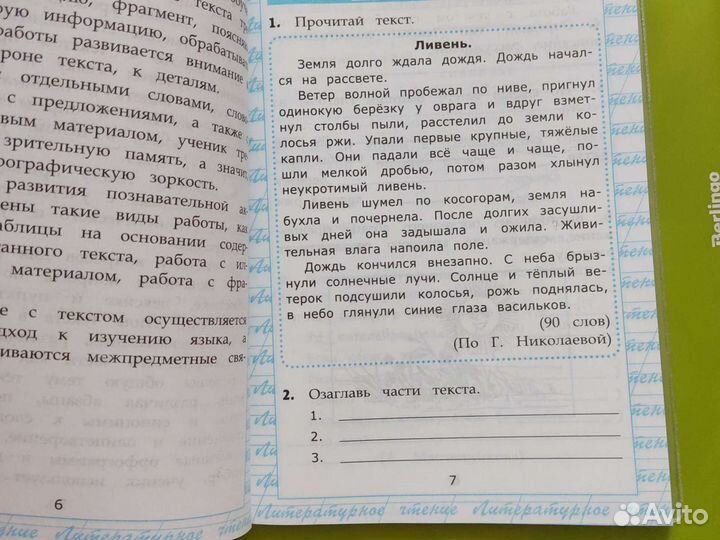 текста
фрагмент, пояснять
информацию, обрабатывать
работы развивается внимание
стороне текста, к деталям.
отдельными словами, слово-
с предложениями, а также с
материалом, ученик тре-
зрительную память, а значит,
орфографическую зоркость.
развития познавательной ак-
такие виды работы, как
таблицы на основании содер-
текста, работа с ил-
материалом, работа с фра-
с текстом осуществляется
подход к изучению языка, а
межпредметные свя-
6
1. Прочитай текст.
Ливень.
Земля долго ждала дождя. Дождь начал-
ся на рассвете.
Ветер волной пробежал по ниве, пригнул
одинокую берёзку у оврага и вдруг взмет-
нул столбы пыли, расстелил до земли ко-
лосья ржи. Упали первые крупные, тяжёлые
капли. Они падали всё чаще и чаще, по-
шли мелкой дробью, потом разом хлынул
неукротимый ливень.
Ливень шумел по косогорам, земля на-
бухла и почернела. После долгих засушли-
вых дней она задышала и ожила. Живи-
тельная влага напоила поле.
Дождь кончился внезапно. С неба брыз-
нули солнечные лучи. Солнце и тёплый ве-
терок подсушили колосья, рожь поднялась,
в небо глянули синие глаза васильков.
(90 слов)
(По Г. Николаевой)
2. Озаглавь части текста.
1.
2.
3.
7
Литературное чтение Литературное
Berlingo
Avito